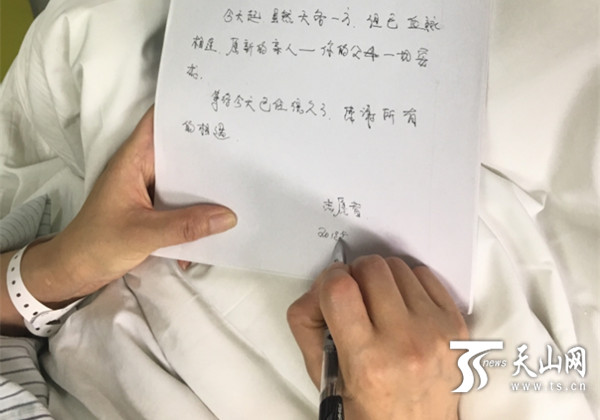 今天起 虽然天各一方，但已血脉
相连，愿新的亲人——你的父母一切安
等待今天已经很久了，感谢所有
的相遇
news
天山网
www.ts.cn